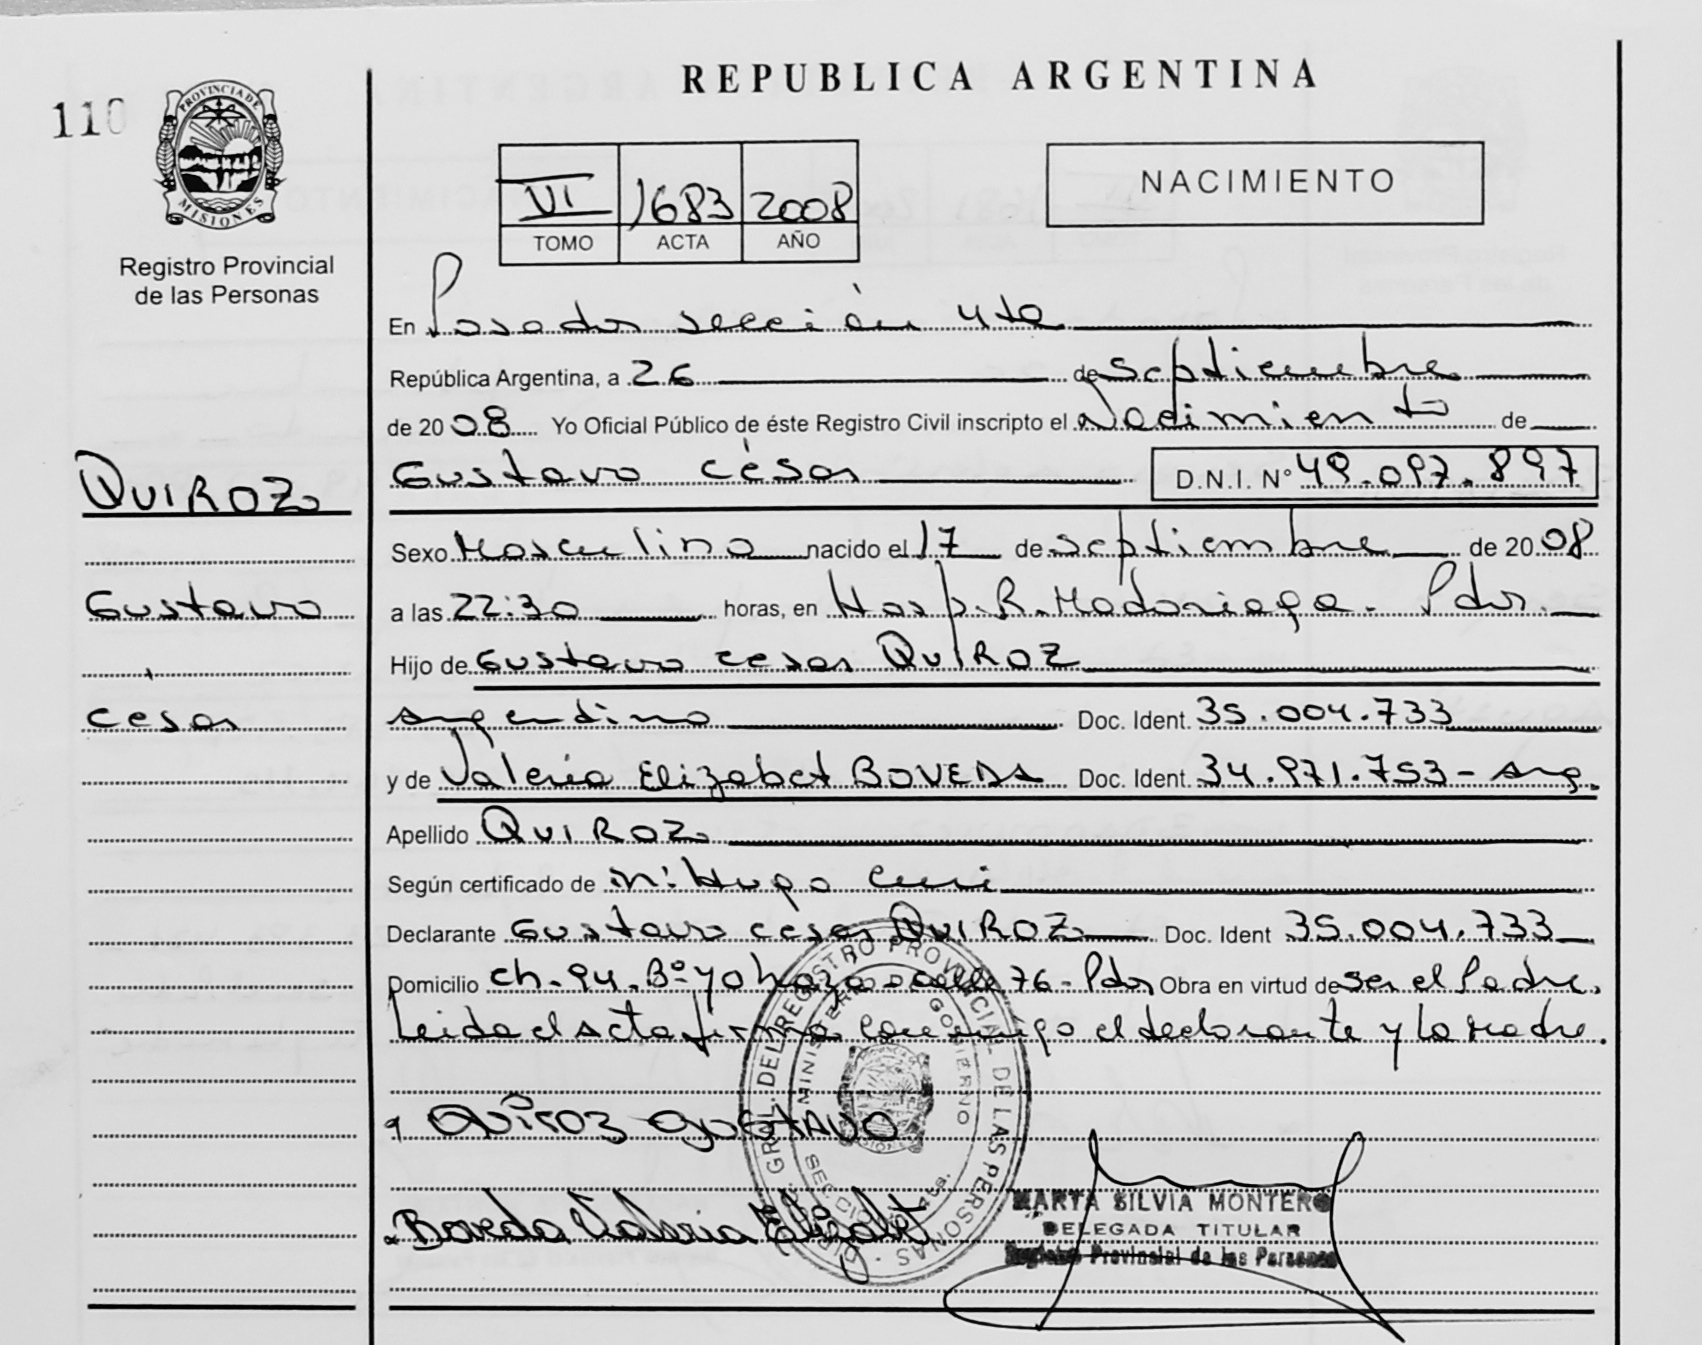 110
PROVINCIA DE
MISIONES
Registro Provincial
de las Personas
REPUBLICA ARGENTINA
VI 1683 2008
TOMO ACTA AÑO
NACIMIENTO
En Posadas sección 4ta
República Argentina, a 26 de septiembre
de 2008 Yo Oficial Público de éste Registro Civil inscripto el Nacimiento de
QUIROZ
Gustavo César D.N.I. N° 49.097.897
Sexo Masculino nacido el 17 de septiembre de 2008
Gustavo
a las 22:30 horas, en Hosp. R. Madariaga. Pdas.
Hijo de Gustavo cesar QUIROZ
cesar
argentino Doc. Ident. 35.004.733
y de Valeria Elizabet BOVEDA Doc. Ident. 34.971.753 - arg.
Apellido QUIROZ
Según certificado de m: Hugo
Declarante Gustavo cesar QUIROZ Doc. Ident 35.004.733
Domicilio ch. 94. B° yohasá calle 76 - Pdas Obra en virtud de ser el Padre.
Leida el acta firma conmigo el declarante y la madre.
Quiroz GUSTAVO
Boveda Valeria Elizabet
DIREC. GRAL. DEL REGISTRO PROVINCIAL DE LAS PERSONAS
MINISTERIO GOBIERNO
SECCION 4ta.
MARTA SILVIA MONTERO
DELEGADA TITULAR
Registro Provincial de las Personas